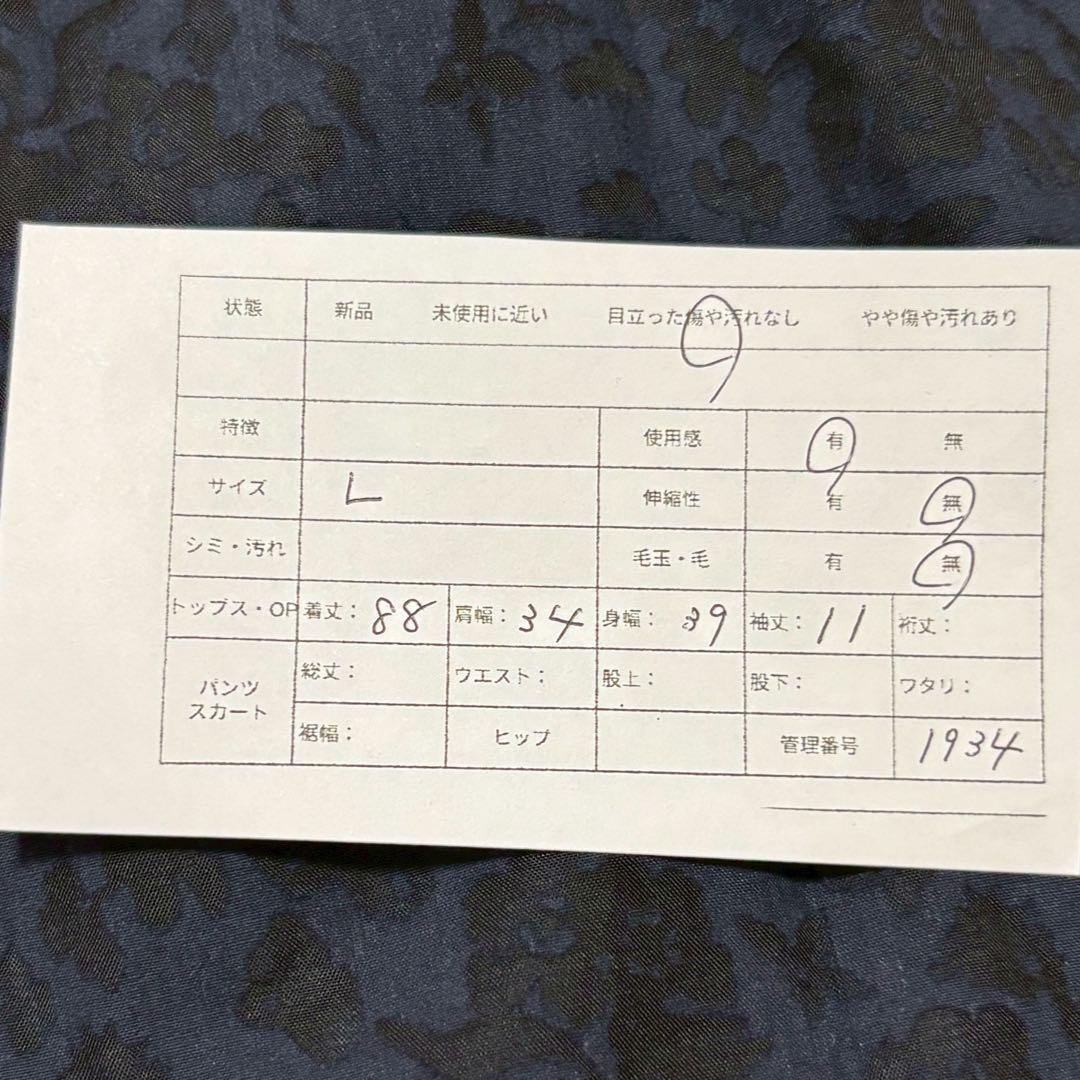 状態 新品 未使用に近い 目立った傷や汚れなし やや傷や汚れあり
特徴 使用感 有 無
サイズ L 伸縮性 有 無
シミ・汚れ 毛玉・毛 有 無
トップス・OP 着丈: 88 肩幅: 34 身幅: 39 袖丈: 11 裄丈:
パンツ
スカート
総丈: ウエスト: 股上: 股下: ワタリ:
裾幅: ヒップ 管理番号 1934